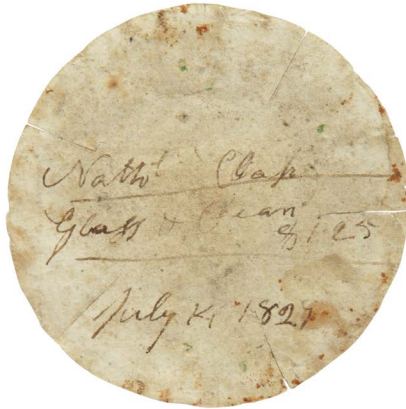 Nathl Clap
Glass & Clean
$1.25
July 14 1827